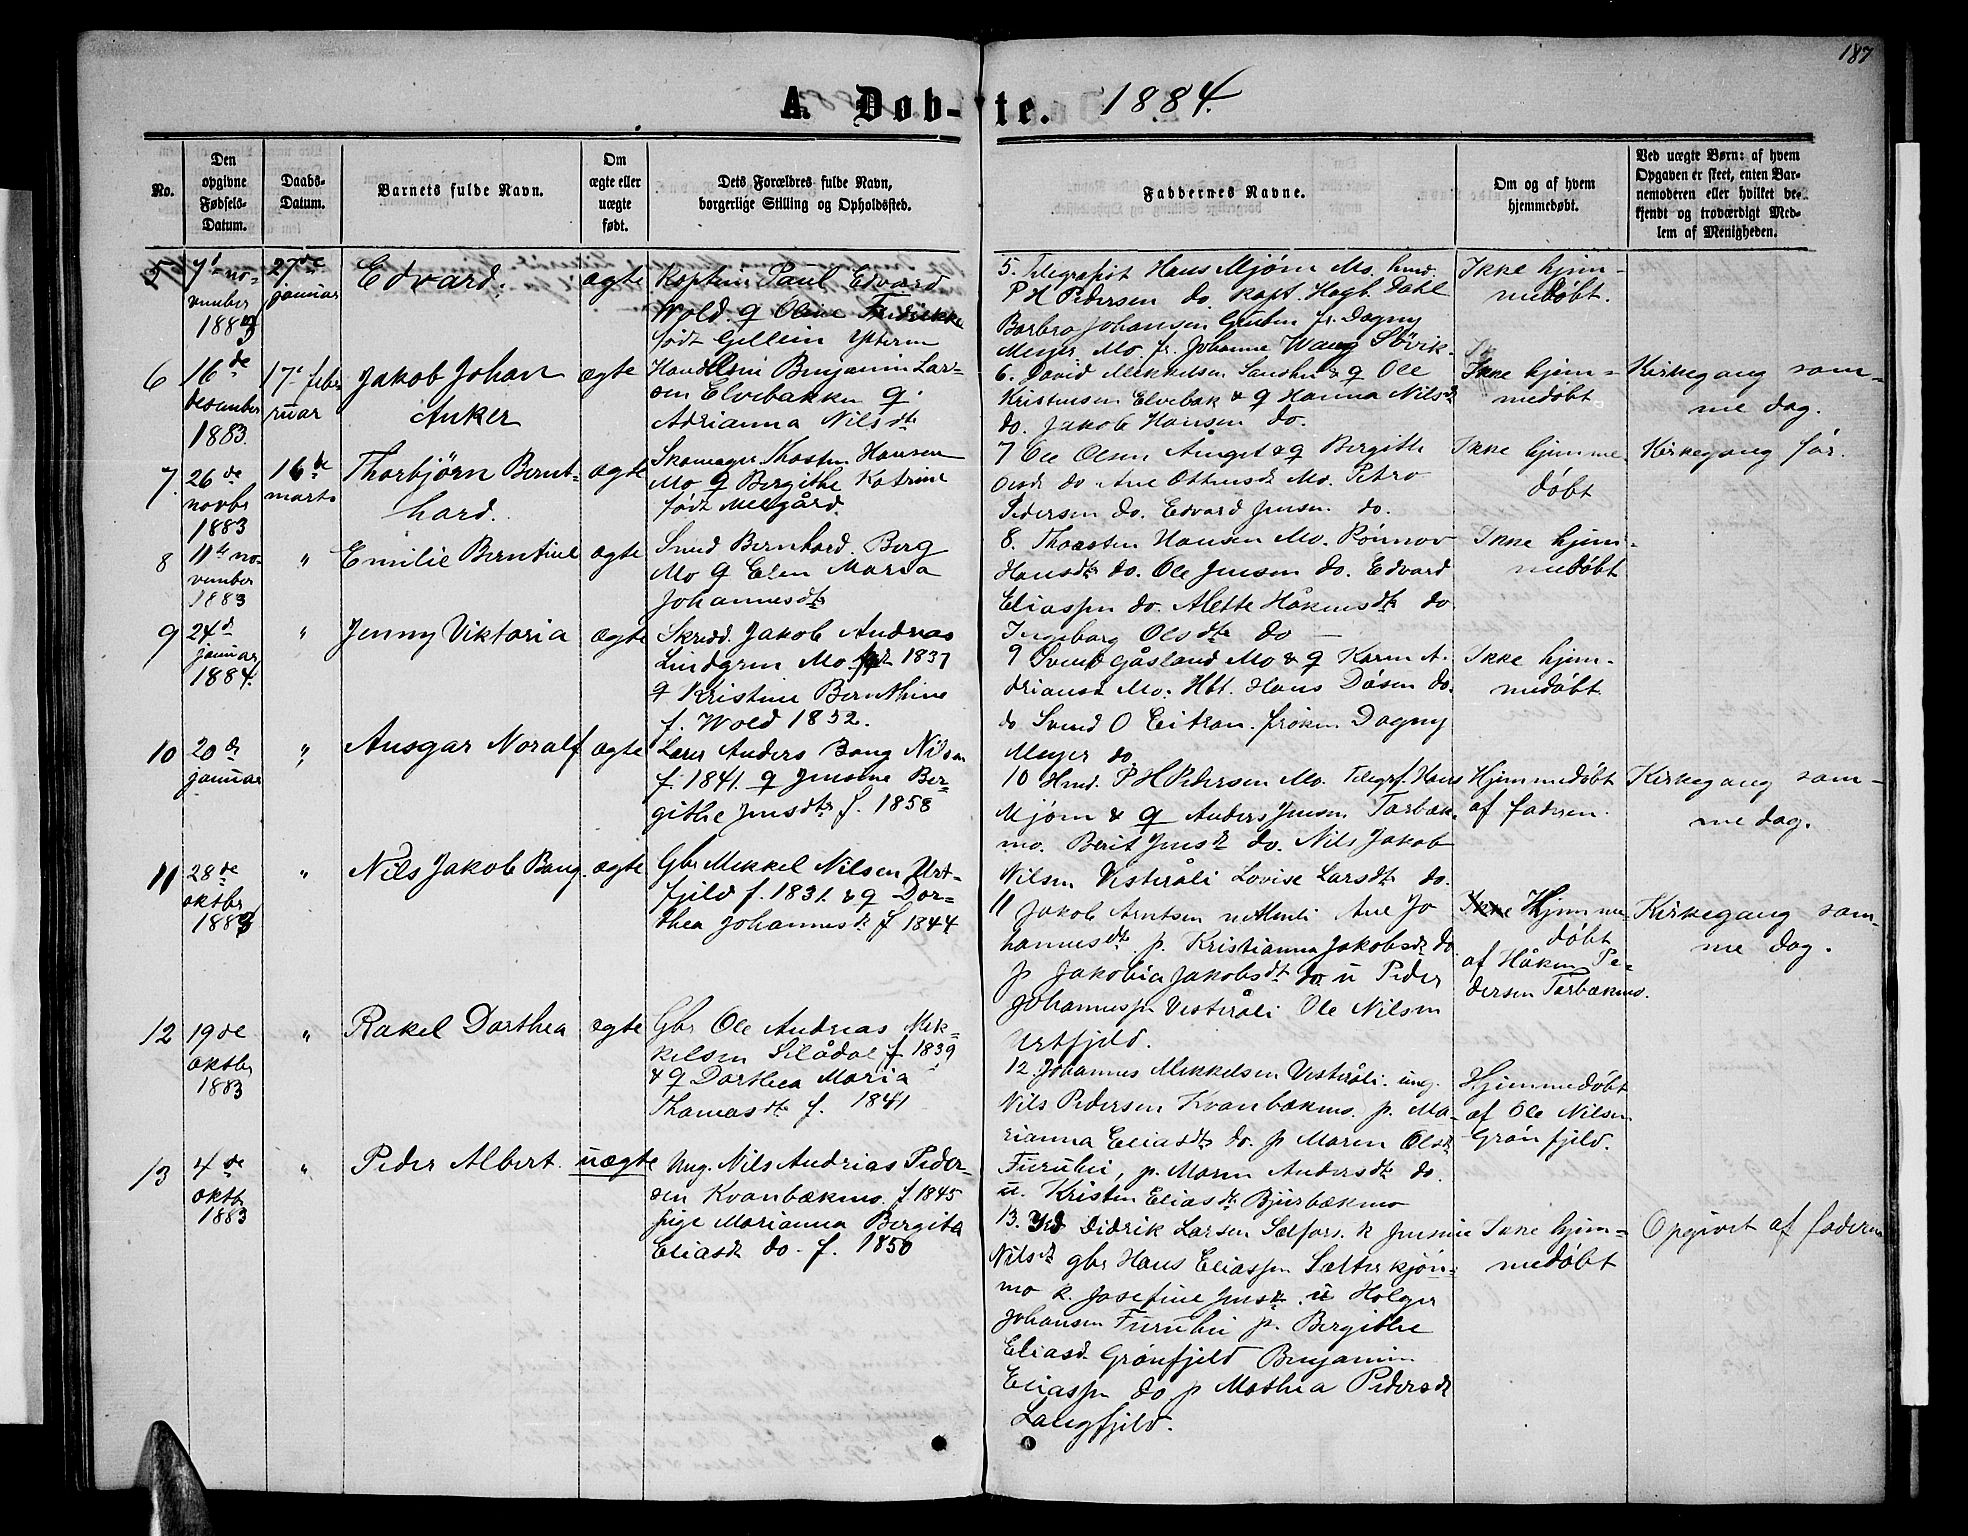 187
A. Døb-te. 1884.
No.
Den opgivne Fødsels-Datum.
Daabs-Datum.
Barnets fulde Navn.
Om ægte eller uægte født.
Dets Forældres fulde Navn, borgerlige Stilling og Opholdssted.
Faddernes Navne.
Om og af hvem hjemmedøbt.
Ved uægte Børn: af hvem Opgaven er skeet, enten Barnemoderen eller hvilket bekjendt og troværdigt Medlem af Menigheden.
5
7d november 1883
27de januar
Edvard.
ægte
Kaptein Paul Edvard
Wold. & Oline Fredrikke
født Gellein Ytteren
5. Telegrafist Hans Mjøm Mo. hmd.
P H Pedersen do. Kapt. Hagb. Dahl
Barbro Johansen Gruben fr. Dagny
Meyer. Mo. fr. Johanne Wang Søvik
Ikke hjem-
medøbt.
6
16de desember 1883.
17d februar
Jakob Johan
Anker
ægte
Benjamin Lar-
sen Elvebakken &
Adrianna Nilsdtr
6. David Mikkelsen & Ole
Kristensen Elvebak & & Hanna Nilsdt
do. Jakob Hansen do.
Ikke hjem-
medøbt
Kirkegang sam-
me dag.
7.
26de novbr 1883
16de marts
Thorbjørn Bernt-
hard.
ægte
Skomager Thosten Hansen
Mo & Bergithe Katrine
født Melgård.
7 Ole Olsen & & Bergithe
Olsdt do. Ane Ottensdt Mo. Petro
Pedersen do. Edvard Jensen. do.
Ikke hjemme-
døbt
Kirkegang før.
8
11te november 1883
"
Emilie Berntine
ægte
Smed Bernhard. Berg
Mo & Elen Maria
Johannesdtr
8. Thorsten Hansen Mo. Rønnov
Hansdtr do. Ole Jensen do. Edvard
Eliassen do. Alette Håkensdtr do
Ingeborg Olsdtr do —
Ikke hjem-
medøbt
9
24d januar 1884.
"
Jenny Viktoria
ægte
Skredd. Jakob Andreas
Lindgren Mo født 1837
& Kristine Bernthine
f. Wold 1852.
9 Svend Gåsland Mo & & Karen A-
driansdt Mo. Hbt. Hans Døsen do.
do Svend O Eitran. frøken Dagny
Meyer do
Ikke hjem-
medøbt
10
20d januar
"
Ansgar Noralf
ægte
Lærer Anders Bang Nilsen
f. 1841. & Jensine Ber-
githe Jensdtr f. 1858
10 Hmd. P H Pedersen Mo. Telegrf. Hans
Mjøm & & Anders Jensen Tarbæk-
mo. Berit Jensdt do. Nils Jakob
Nilsen Vesteråli Lovise Larsdtr do.
Hjemmedøbt
af faderen.
Kirkegang sam-
me dag.
11
28de oktbr 1883
"
Nils Jakob Bang.
ægte
Gbr Mikkel Nilsen Urt-
fjeld f. 1831. & & Dor-
thea Johannesdt f 1844
11 Jakob Arntsen Ane Jo
hannesdtr p. Kristianna Jakobsdt do
p Jakobia Jakobsdt do u Peder
Johannessen Vesteråli Ole Nilsen
Urtfjeld.
Ikke Hjemme-
døbt
af Håken Pe-
dersen Tarbækmo.
Kirkegang sam-
me dag.
12
19de oktbr 1883
"
Rakel Dorthea
ægte
Gbr Ole Andreas Mik-
kelsen Stlådal f 1839
& & Dorthea Maria
Thomasdtr f. 1841
12. Johannes Mikkelsen Vesteråli. ung.
Nils Pedersen Kvanbækmo. p. Ma-
rianna Eliasdtr do. p Maren Olsdt
Furuhei, p. Maren Andersdtr do.
u. Kristen Eliasdt Bjurbækmo
Hjemmedøbt
af Ole Nilsen
Grønfjeld.
13
4de oktb 1883
"
Peder Albert.
uægte
Ung. Nils Andreas Peder-
sen Kvanbækmo. f 1845
pige Marianna Bergita
Eliasdt do. f. 1850
13. Didrik Larsen Sælfors. k Jensine
Nilsdt gbr Hans Eliassen Sætterkjøn-
mo k. Josefine Jensdt. u Holger
Johansen Furuhei p. Bergithe
Eliasd. Grønfjeld Benjamin
Eliassen do p Mathea Pedersdt
Langfjeld.
Ikke hjem-
medøbt
Opgivet af faderen